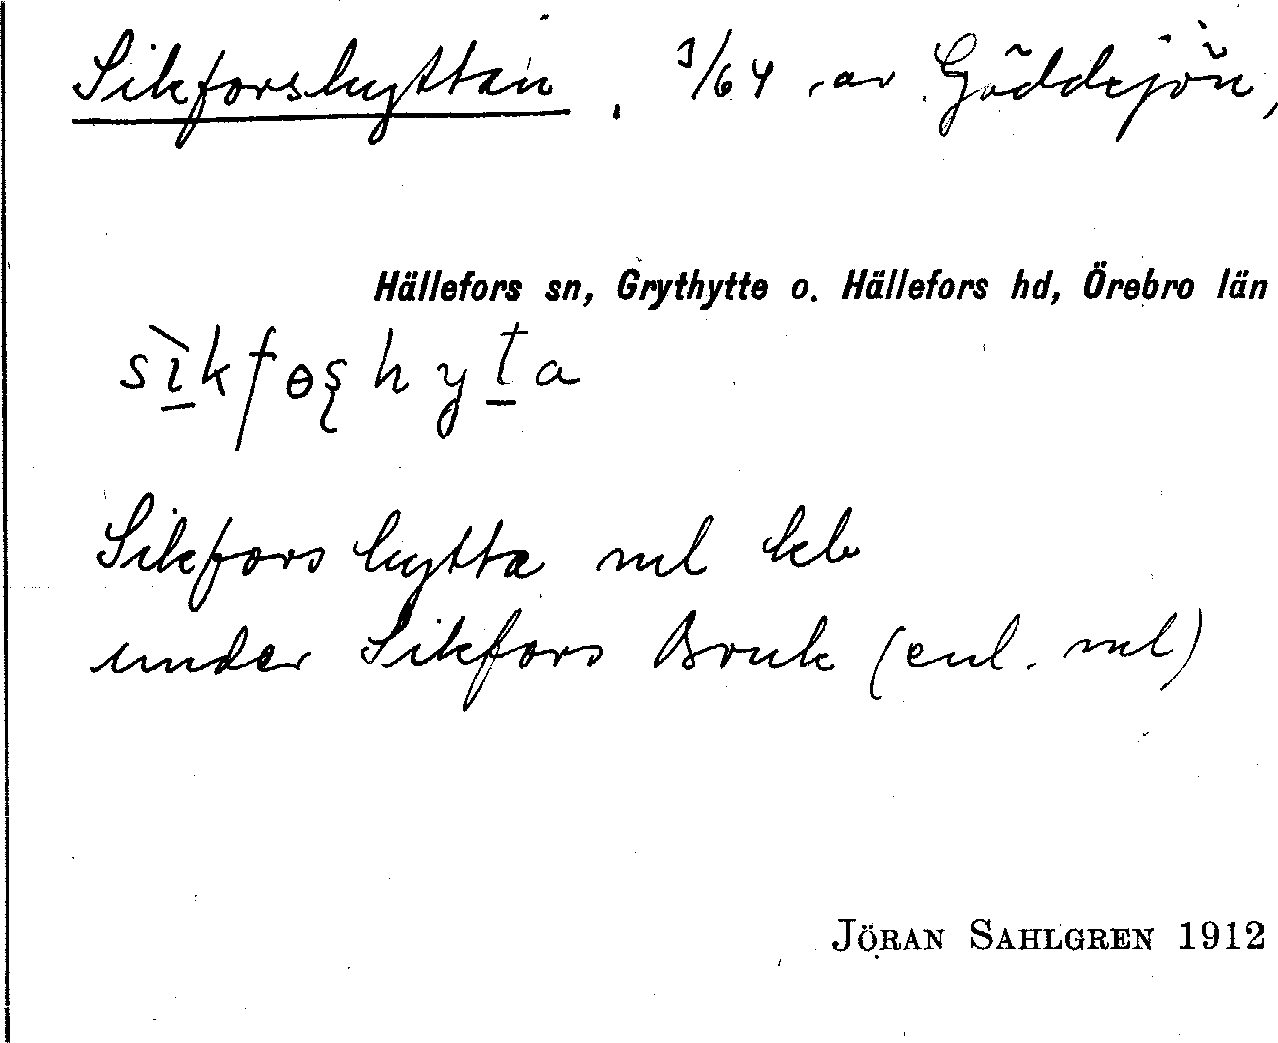 Sikforshyttan. 3/64 av Gäddsjön,
Hällefors sn, Grythytte o. Hällefors hd, Örebro län
sìkfɵʂhyta
Sikfors hytta ml kb
under Sikfors Bruk (enl. ml)
JÖRAN SAHLGREN 1912